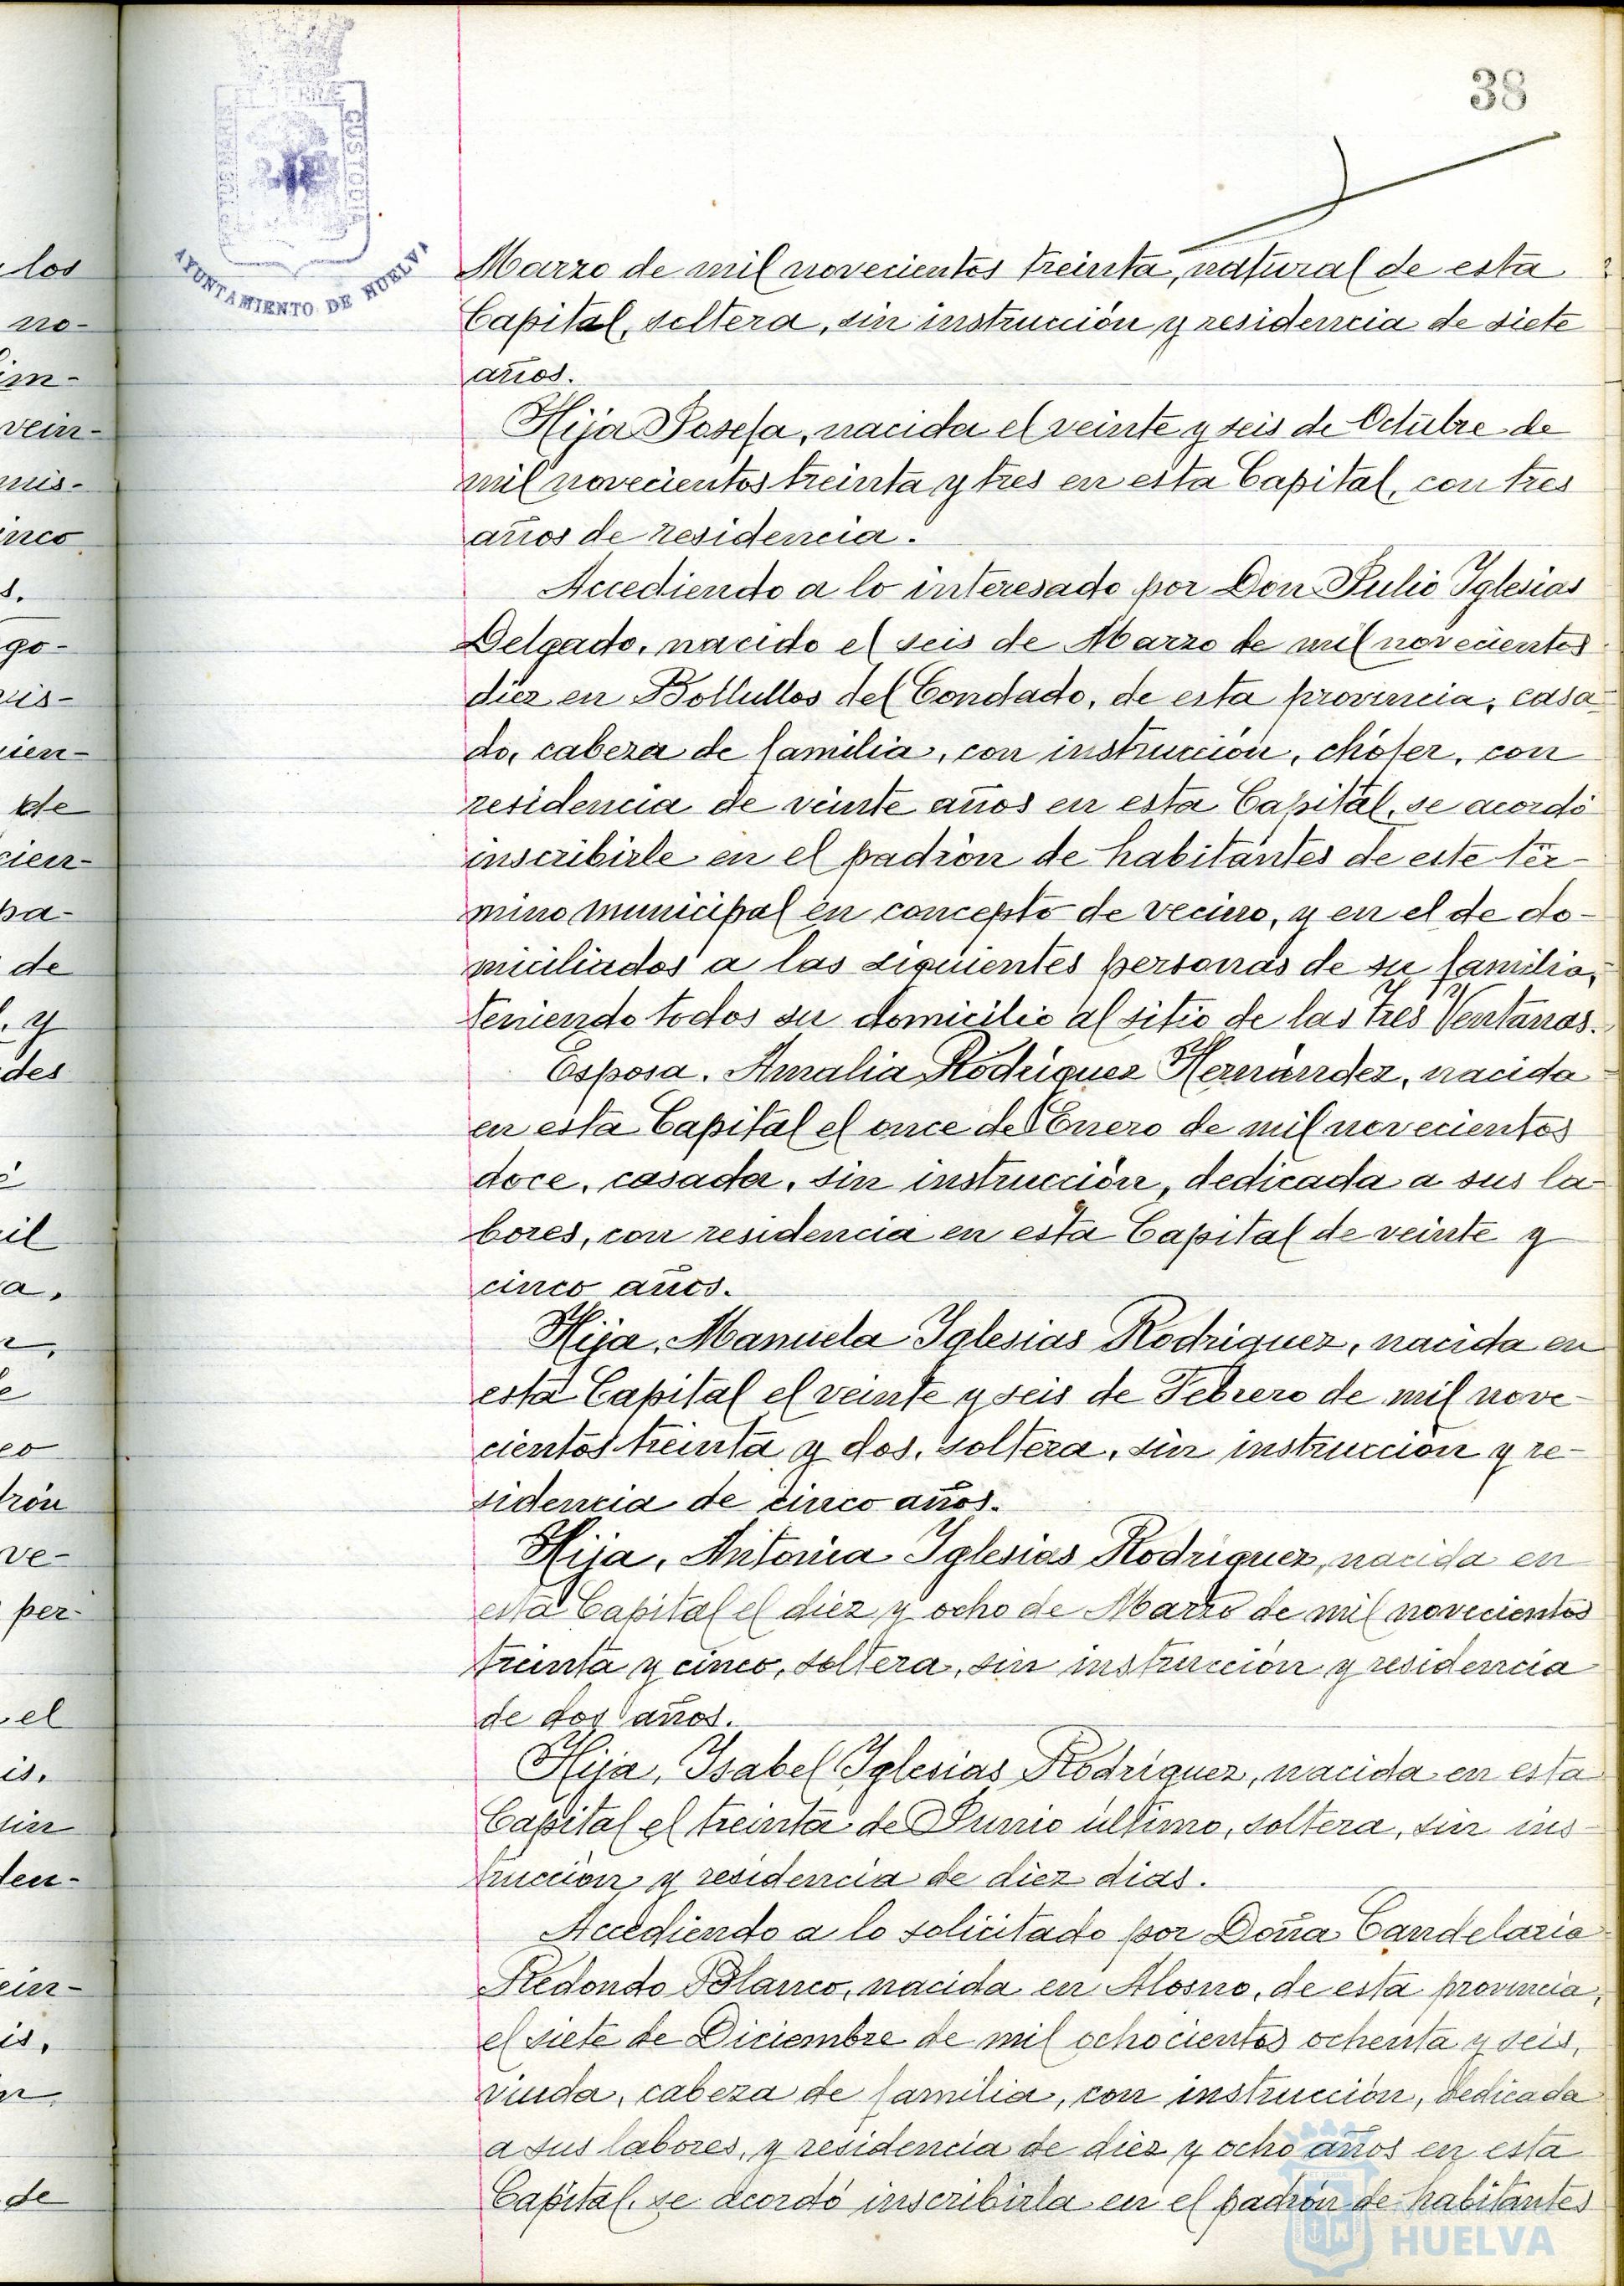 38
PORTUS MARIS ET TERRE CUSTODIA
AYUNTAMIENTO DE HUELVA
Marzo de mil novecientos treinta, natural de esta
Capital, soltera, sin instrucción y residencia de siete
años.
Hija Josefa, nacida el veinte y seis de Octubre de
mil novecientos treinta y tres en esta Capital, con tres
años de residencia.
Accediendo a lo interesado por Don Julio Yglesias
Delgado, nacido el seis de Marzo de mil novecientos
diez en Bollullos del Condado, de esta provincia, casa-
do, cabeza de familia, con instrucción, chófer, con
residencia de veinte años en esta Capital, se acordó
inscribirle en el padrón de habitantes de este tér-
mino municipal en concepto de vecino, y en el de do-
miciliados a las siguientes personas de su familia,
teniendo todos su domicilio al sitio de las Tres Ventanas.
Esposa, Amalia Rodriguez Hernández, nacida
en esta Capital el once de Enero de mil novecientos
doce, casada, sin instrucción, dedicada a sus la-
bores, con residencia en esta Capital de veinte y
cinco años.
Hija, Manuela Yglesias Rodriguez, nacida en
esta Capital el veinte y seis de Febrero de mil nove-
cientos treinta y dos, soltera, sin instrucción y re-
sidencia de cinco años.
Hija, Antonia Yglesias Rodriguez, nacida en
esta Capital el diez y ocho de Marzo de mil novecientos
treinta y cinco, soltera, sin instrucción y residencia
de dos años.
Hija, Ysabel Yglesias Rodriguez, nacida en esta
Capital el treinta de Junio último, soltera, sin ins-
trucción y residencia de diez dias.
Accediendo a lo solicitado por Doña Candelaria
Redondo Blanco, nacida en Alosno, de esta provincia,
el siete de Diciembre de mil ochocientos ochenta y seis,
viuda, cabeza de familia, con instrucción, dedicada
a sus labores, y residencia de diez y ocho años en esta
Capital, se acordó inscribirla en el padrón de habitantes
HUELVA